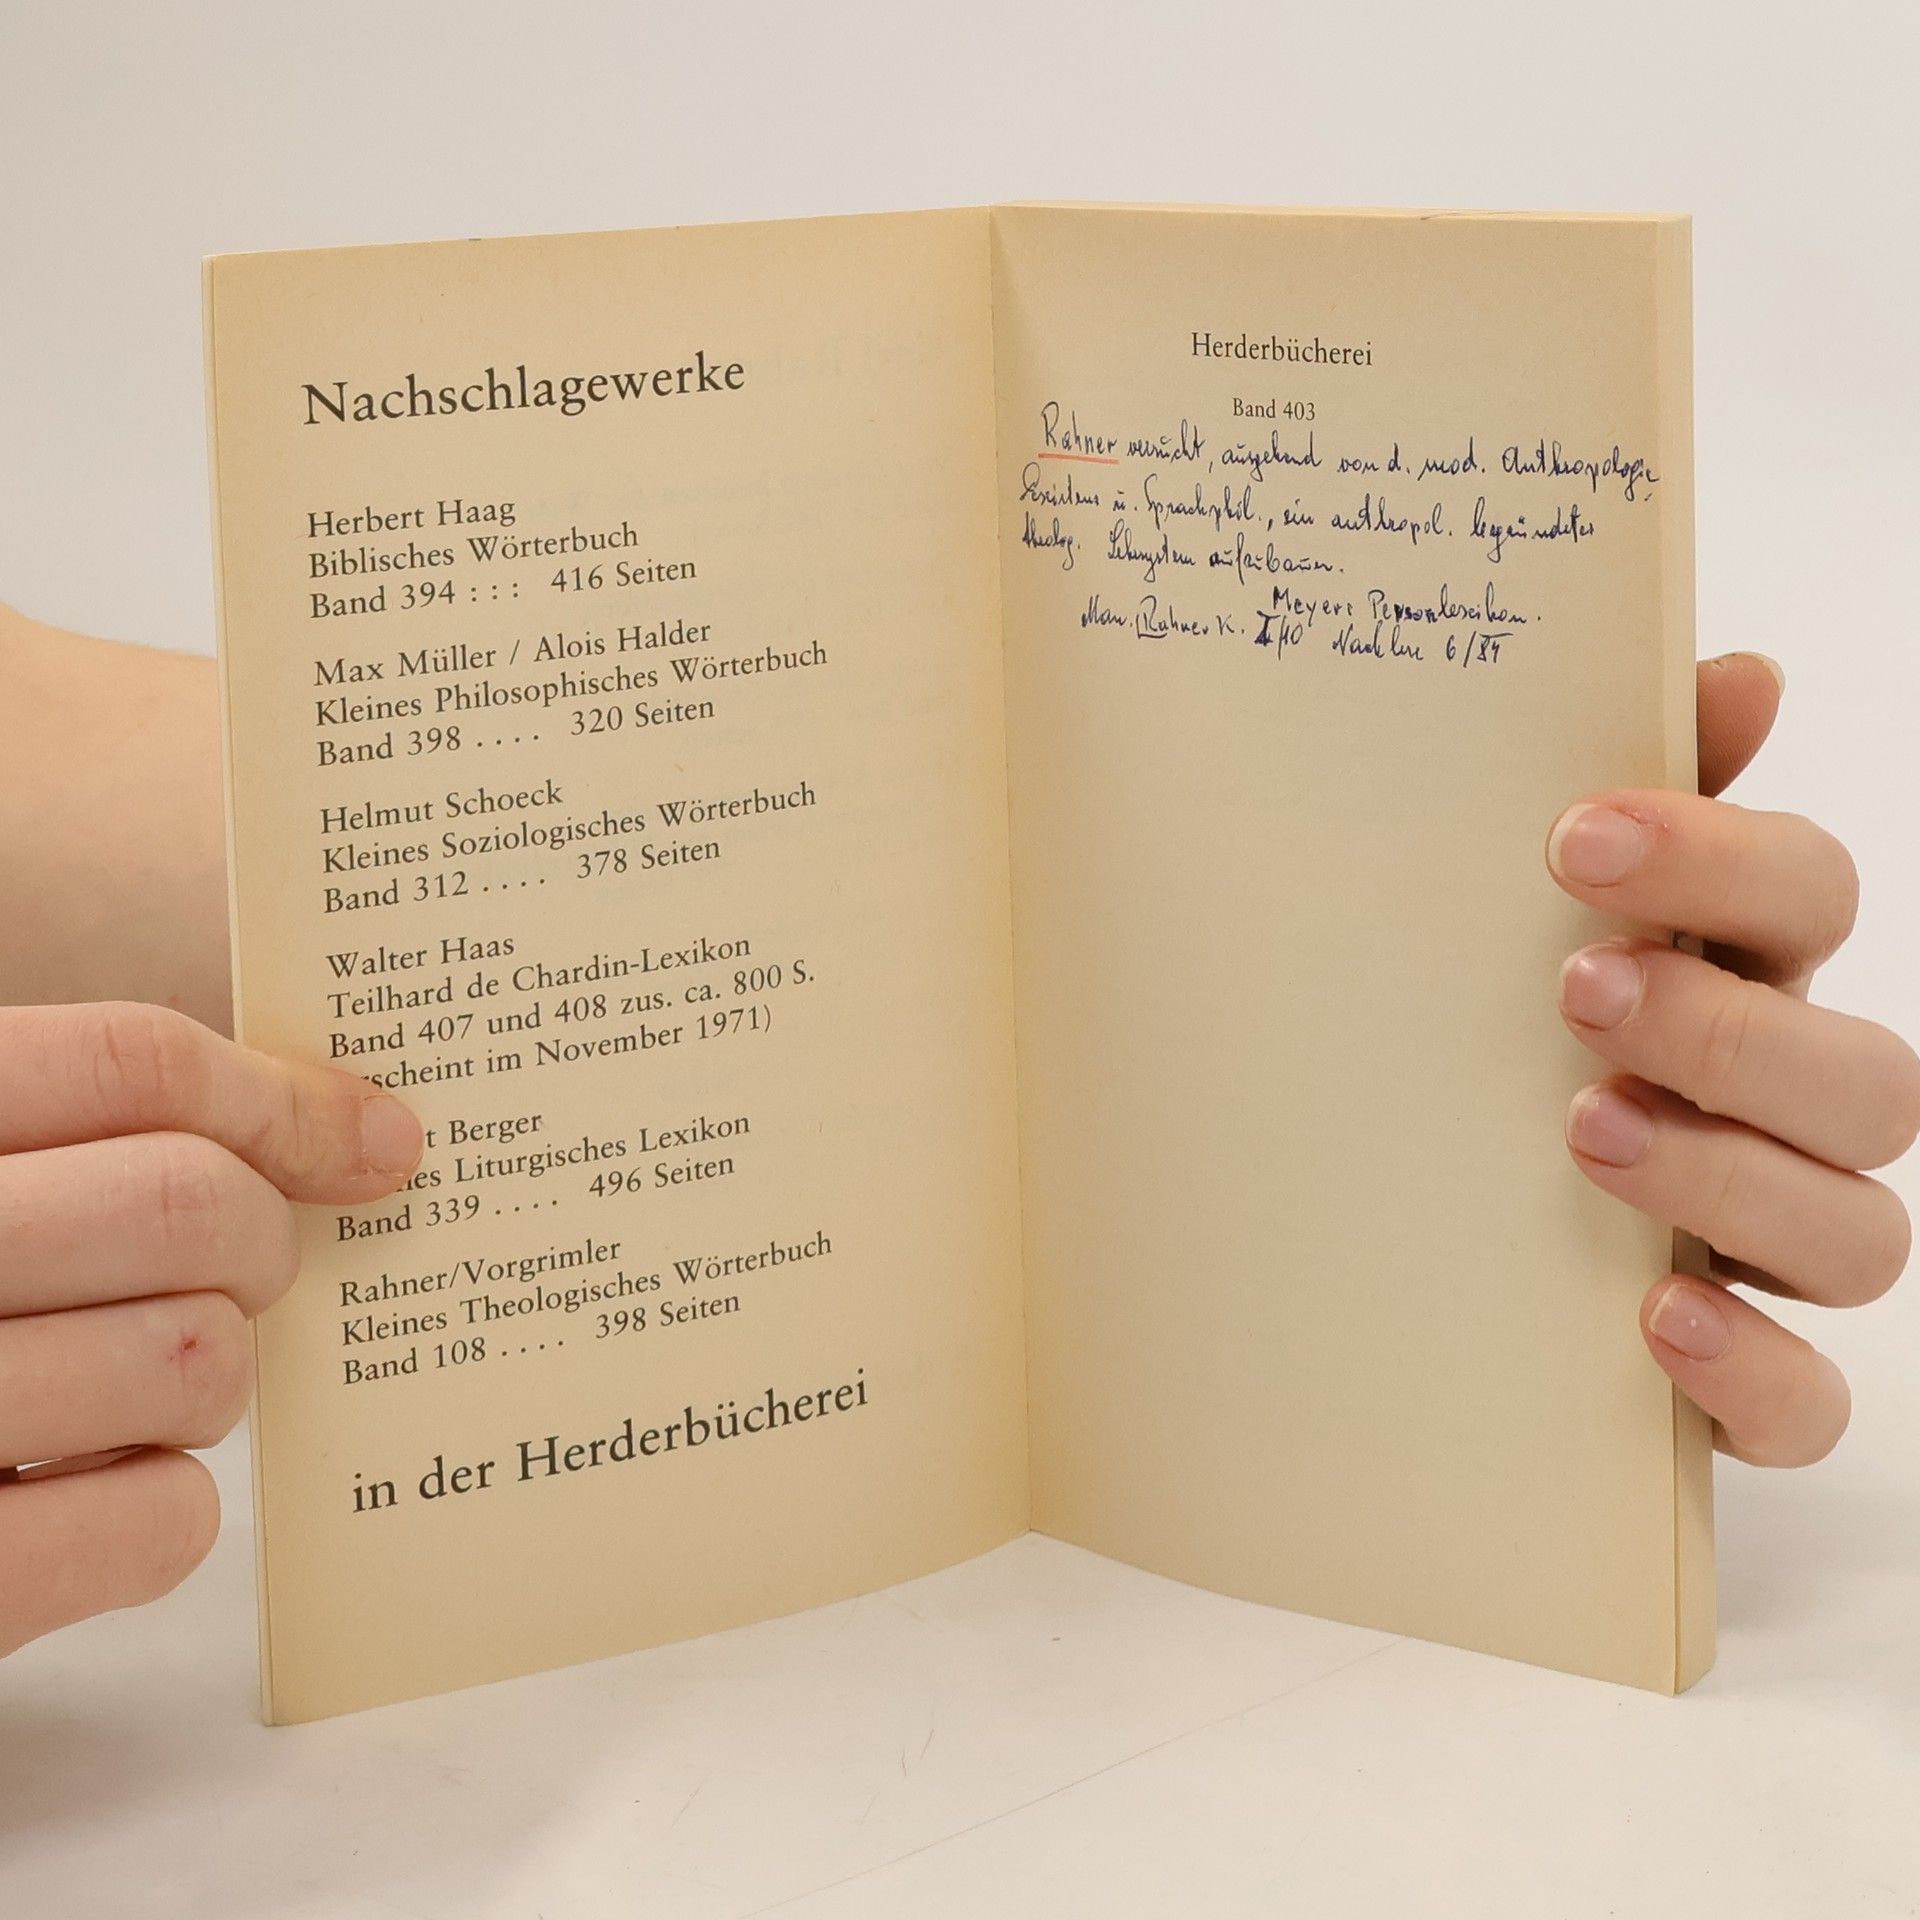 Nachschlagewerke
Herbert Haag
Biblisches Wörterbuch
Band 394 : : : 416 Seiten
Max Müller / Alois Halder
Kleines Philosophisches Wörterbuch
Band 398 . . . . 320 Seiten
Helmut Schoeck
Kleines Soziologisches Wörterbuch
Band 312 . . . . 378 Seiten
Walter Haas
Teilhard de Chardin-Lexikon
Band 407 und 408 zus. ca. 800 S.
scheint im November 1971)
t Berger
nes Liturgisches Lexikon
Band 339 . . . . 496 Seiten
Rahner/Vorgrimler
Kleines Theologisches Wörterbuch
Band 108 . . . . 398 Seiten
in der Herderbücherei
Herderbücherei
Band 403
Rahner versucht, ausgehend von d. mod. Anthropologie
u. Sprachphil., ein anthropol. begründetes
theolog. Lehrsystem aufzubauen.
Meyers Personlexikon.
Rahner K. 6/84